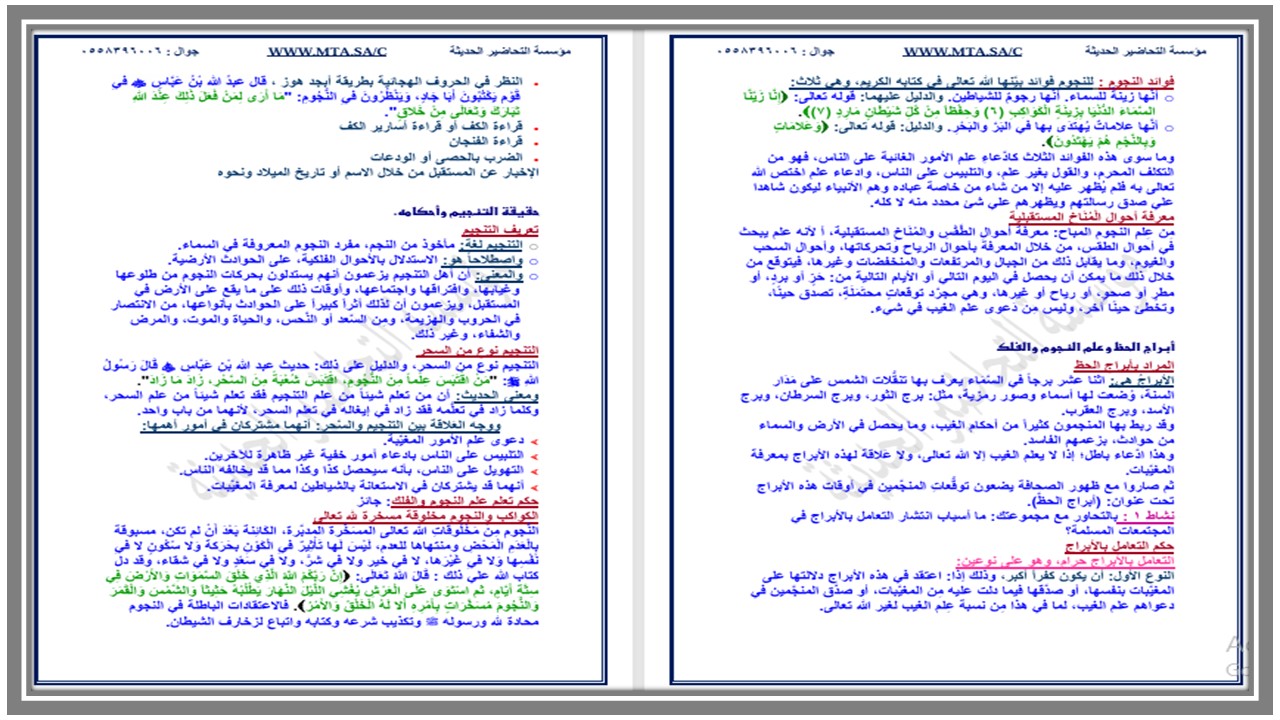 مؤسسة التحاضير الحديثة WWW.MTA.SA/C جوال : ٠٥٥٨٣٩٦٠٠٦
فوائد النجوم : للنجوم فوائد بيّنها الله تعالى في كتابه الكريم، وهي ثلاث:
أنها زينة للسماء. أنها رجوم للشياطين. والدليل عليهما: قوله تعالى: ﴿إِنَّا زَيَّنَّا
السَّمَاءَ الدُّنْيَا بِزِينَةِ الْكَوَاكِبِ (٦) وَحِفْظًا مِنْ كُلِّ شَيْطَانٍ مَارِدٍ (٧)﴾.
أنها علامات يُهتدَى بها في البَرّ والبَحَر. والدليل: قوله تعالى: ﴿وَعَلَامَاتٍ
وَبِالنَّجْمِ هُمْ يَهْتَدُونَ﴾.
وما سوى هذه الفوائد الثلاث كادّعاء علم الأمور الغائبة على الناس، فهو من
التكلف المحرم، والقول بغير علم، والتلبيس على الناس، وادعاء علم اختص الله
تعالى به فلم يُظهر عليه إلا من شاء من خاصة عباده وهم الأنبياء ليكون شاهدا
على صدق رسالتهم ويظهرهم على شئ محدد منه لا كله.
معرفة أحوال الْمُنَاخ المستقبلية
من علم النجوم المباح: معرفة أحوال الطَّقْس والمُنَاخ المستقبلية، أ لأنه علم يبحث
في أحوال الطقس، من خلال المعرفة بأحوال الرياح وتحركاتها، وأحوال السحب
والغيوم، وما يقابل ذلك من الجبال والمرتفعات والمنخفضات وغيرها، فيتوقع من
خلال ذلك ما يمكن أن يحصل في اليوم التالي أو الأيام التالية من: حَرّ أو بردٍ، أو
مطرٍ أو صحوٍ، أو رياح أو غيرها، وهي مجرّد توقعاتٍ محتمَلة، تصدُق حينًا،
وتخطئ حينًا آخر، وليس من دعوى علم الغيب في شيء.
أبراج الحظ وعلم النجوم والفلك
المراد بأبراج الحظ
الأبراجُ هي: اثنا عشر برجاً في السمَاء يعرف بها تنقُّلات الشمس على مَدَار
السنة، وُضعت لها أسماء وصور رمزية، مثل: برج الثور، وبرج السرطان، وبرج
الأسد، وبرج العقرب.
وقد ربط بها المنجمون كثيراً من أحكام الغيب، وما يحصل في الأرض والسماء
من حوادث، بزعمهم الفاسد.
وهذا ادّعاء باطل؛ إذا لا يعلم الغيب إلا الله تعالى، ولا علاقة لهذه الأبراج بمعرفة
المغيّبات.
ثم صاروا مع ظهور الصحافة يضعون توقُّعاتِ المنجّمين في أوقات هذه الأبراج
تحت عنوان: (أبراج الحظّ).
نشاط ١ : بالتحاور مع مجموعتك: ما أسباب انتشار التعامل بالأبراج في
المجتمعات المسلمة؟
حكم التعامل بالأبراج
التعامل بالأبراج حرام، وهو على نوعين:
النوع الأول: أن يكون كفراً أكبر، وذلك إذا: اعتقد في هذه الأبراج دلالتها على
المغيبات بنفسها، أو صدّقها فيما دلت عليه من المغيّبات، أو صدّق المنجّمين في
دعواهم علم الغيب، لما في هذا من نسبة علم الغيب لغير الله تعالى.
مؤسسة التحاضير الحديثة WWW.MTA.SA/C جوال : ٠٥٥٨٣٩٦٠٠٦
النظر في الحروف الهجائية بطريقة أبجد هوز ، قال عبدُ الله بْنُ عَبَّاسٍ في
قَوْم يَكْتُبُونَ أبَا جَادٍ، وَيَنْظُرُونَ في النُّجُوم: "مَا أَرَى لِمَنْ فَعَلَ ذَلِكَ عِنْدَ اللهِ
تَبَارَكَ وَتَعَالَى مِنْ خَلَاقٍ".
قراءة الكف أو قراءة أسارير الكف
قراءة الفنجان
الضرب بالحصى أو الودعات
الإخبار عن المستقبل من خلال الاسم أو تاريخ الميلاد ونحوه
حقيقة التنجيم وأحكامه.
تعريف التنجيم
التنجيم لغة: مأخوذ من النجم، مفرد النجوم المعروفة في السماء.
واصطلاحاً هو: الاستدلال بالأحوال الفلكية، على الحوادث الأرضية.
والمعنى: أن أهل التنجيم يزعمون أنهم يستدلون بحركات النجوم من طلوعها
وغيابها، وافتراقها واجتماعها، وأوقات ذلك على ما يقع على الأرض في
المستقبل، ويزعمون أن لذلك أثراً كبيراً على الحوادث بأنواعها، من الانتصار
في الحروب والهزيمة، ومن السّعد أو النّحس، والحياة والموت، والمرض
والشفاء، وغير ذلك.
التنجيم نوع من السحر
التنجيم نوع من السحر، والدليل على ذلك: حديث عبد الله بْن عَبَّاسٍ قَالَ رَسُولُ
الله ﷺ: "مَن اقْتَبَسَ عِلْماً مِنَ النُّجُومِ، اقْتَبَسَ شُعْبَةً مِنَ السِّحْرِ، زَادَ مَا زَادَ".
ومعنى الحديث: أن من تعلم شيئاً من علم التنجيم فقد تعلم شيئاً من علم السحر،
وكلما زاد في تعلُّمه فقد زاد في إيغاله في تعلم السحر، لأنهما من باب واحد.
ووجه العلاقة بين التنجيم والسّحر: أنهما مشتركان في أمور أهمها:
دعوى علم الأمور المغيّبة.
التلبيس على الناس بادعاء أمور خفية غير ظاهرة للآخرين.
التهويل على الناس، بأنه سيحصل كذا وكذا مما قد يخالفه الناس.
أنهما قد يشتركان في الاستعانة بالشياطين لمعرفة المغيّبات.
حكم تعلم علم النجوم والفلك: جائز
الكواكب والنجوم مخلوقة مسخرة لله تعالى
النُّجوم من مَخلوقاتِ الله تعالى المسَخّرة المدبّرة، الكائنة بَعْدَ أنْ لم تكن، مسبوقة
بِالعَدَمِ الْمَحْضِ ومنتهاها للعدم، لَيْسَ لَها تَأثِيرٌ في الْكَوْنِ بحَرَكَةٍ وَلا سُكُونٍ لا في
نَفْسِها وَلا في غَيْرِهَا، لا في خير ولا في شرّ، ولا في سَعْدٍ ولا في شقاء، وقد دل
كتاب الله على ذلك : قالَ اللهُ تعالى: ﴿إِنَّ رَبَّكُمُ اللَّهُ الَّذِي خَلَقَ السَّمَوَاتِ وَالأَرْضَ فِي
سِتَّةِ أَيَّامٍ، ثُمَّ اسْتَوَى عَلَى الْعَرْشِ يُغْشِي اللَّيْلَ النَّهَارَ يَطْلُبُهُ حَثِيثًا وَالشَّمْسَ وَالْقَمَرَ
وَالنُّجُومَ مُسَخَّرَاتٍ بِأَمْرِهِ أَلا لَهُ الْخَلْقُ وَالأَمْرُ﴾. فالاعتقادات الباطلة في النجوم
محادة لله ورسوله ﷺ وتكذيب شرعه وكتابه واتباع لزخارف الشيطان.